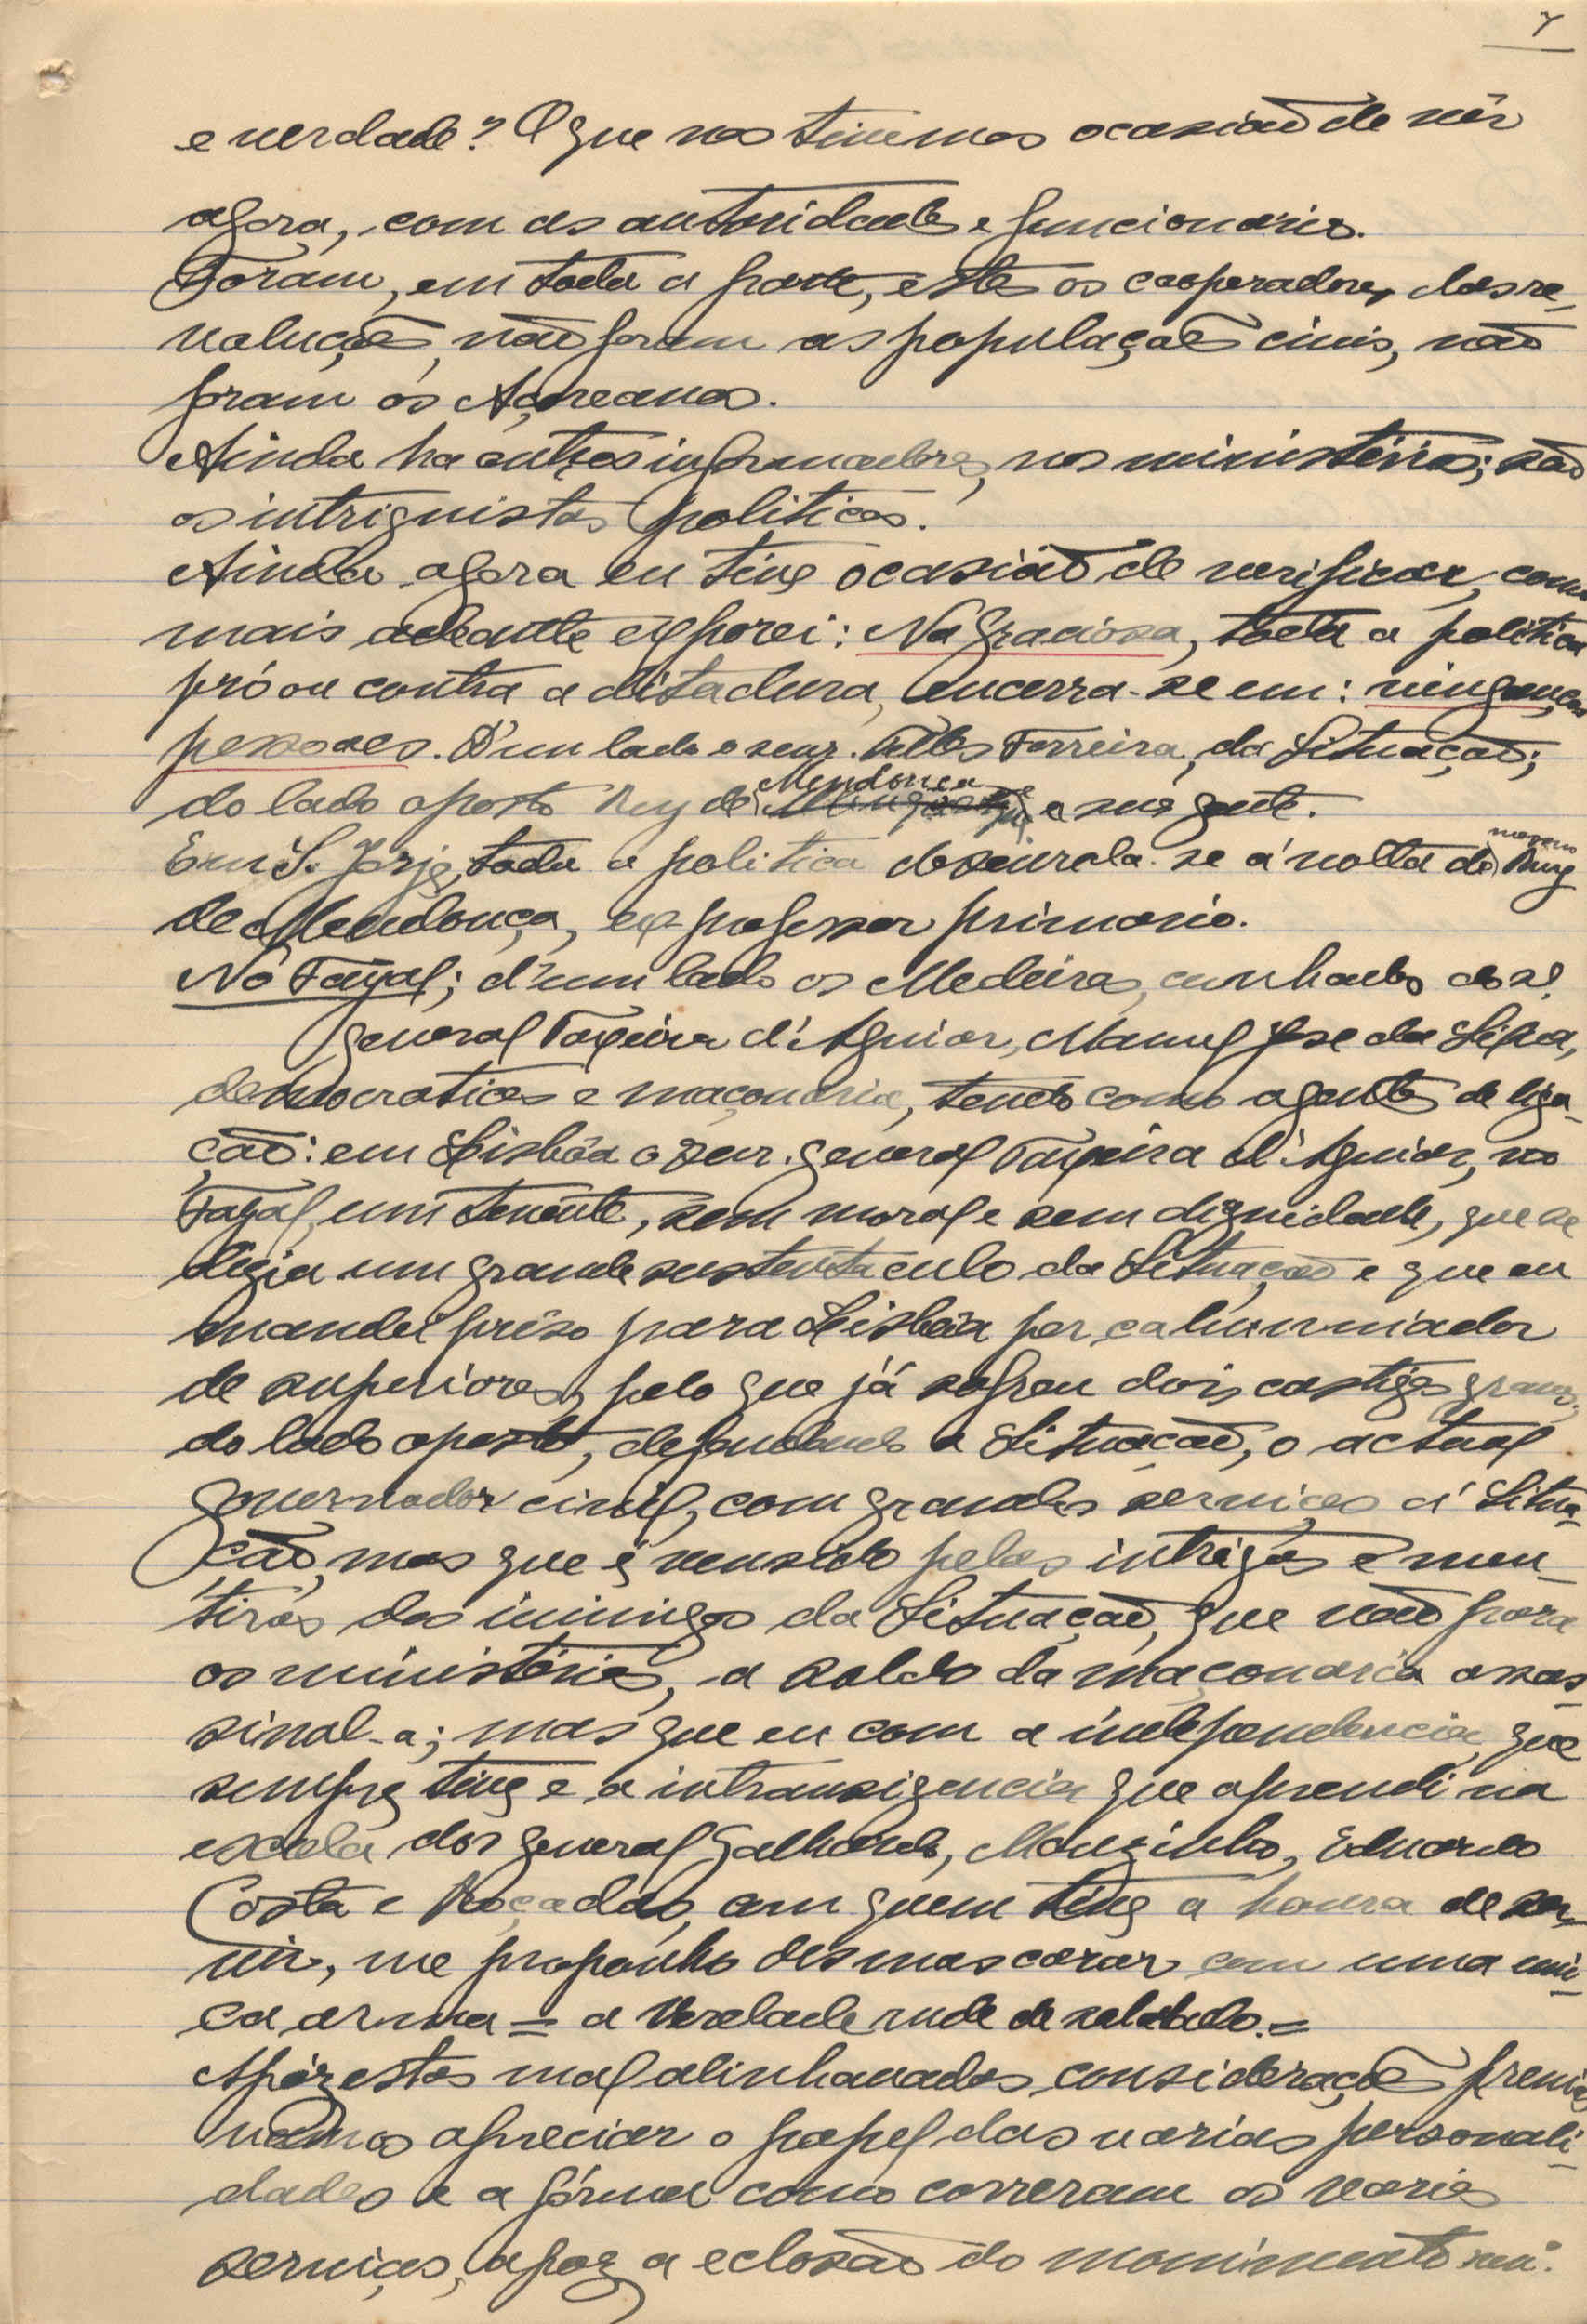 7
e verdade? O que nos tivemos ocasião de vêr
agora, com as autoridades e funcionários.
Foram, em toda a parte, estes os cooperadores das re-
voluções, não foram as populações civis, não
foram os Açoreanos.
Ainda ha outros informadores, nos ministérios; são
os intriguistas politicos.
Ainda agora eu tive ocasião de verificar, como
mais adeante exporei: Na Graciosa, toda a politica
pró ou contra a ditadura, encerra-se em: vinganças
pessoaes. D'um lado o snr. Telles Ferreira, da Situação;
do lado oposto Ruy de Mendonça e sua gente.
Em S. Jorje, toda a politica desenrola-se á volta do mesmo Ruy
de Mendonça, ex-professor primario.
No Fayal; d'um lado os Medeiros, cunhados do sr.
general Teixeira d'Aguiar, Manuel José da Silva,
democraticos e maçonaria, tendo como agentes de liga-
ção: em Lisbôa o snr. general Teixeira d'Aguiar, no
Fayal, um tenente, sem moral e sem dignidade, que se
dizia um grande sustentaculo da Situação e que eu
mandei prêso para Lisbôa por caluniador
de superiores, pelo que já sofreu dois castigos graves;
do lado oposto, defendendo a Situação, o actual
governador civil, com grandes serviços á Situa-
ção, mas que é vencido pelas intrigas e men-
tiras dos inimigos da Situação, que vão para
os ministérios, a soldo da maçonaria assas-
sinal-a; mas que eu com a independencia que
sempre tive e a intransigencia que aprendi na
escola dos general Galhardo, Mouzinho, Eduardo
Costa e Roçadas, com quem tive a honra de ser-
vir, me proponho desmascarar com uma uni-
ca arma = a Verdade rude de soldado. =
Apóz estas mal alinhavadas considerações
vamos apreciar o papel das varias personali-
dades e a fórma como correram os varios
serviços, apoz a eclosão do movimento